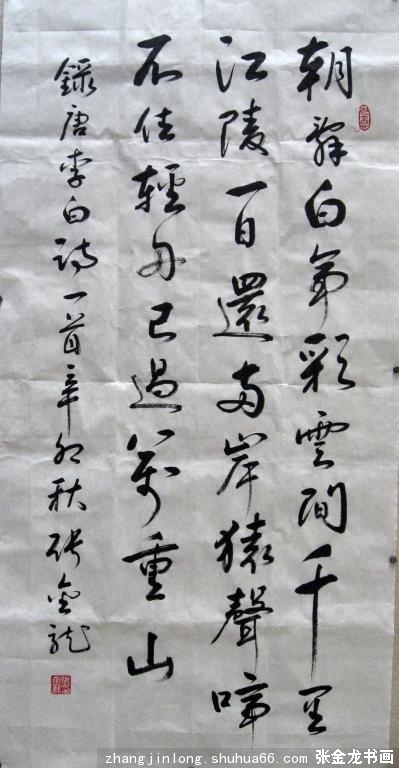 朝辭白帝彩雲間千里
江陵一日還兩岸猿聲啼
不住輕舟已過萬重山
錄唐李白詩一首辛卯秋張金龍
zhangjinlong.shuhua66.com 张金龙书画